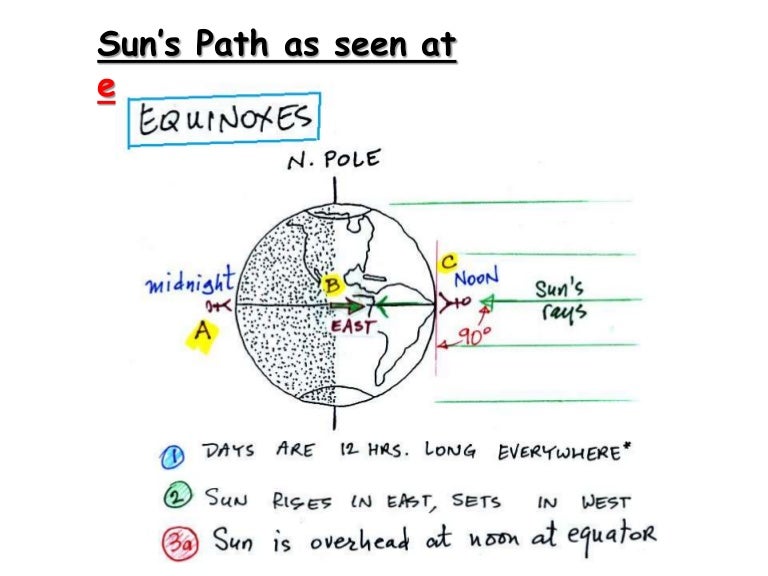 Sun's Path as seen at
e
EQUINOXES
N. POLE
midnight
A
B
EAST
C
NOON
Sun's
rays
90°
1 DAYS ARE 12 HRS. LONG EVERYWHERE*
2 SUN RISES IN EAST, SETS IN WEST
3a Sun is overhead at noon at equator